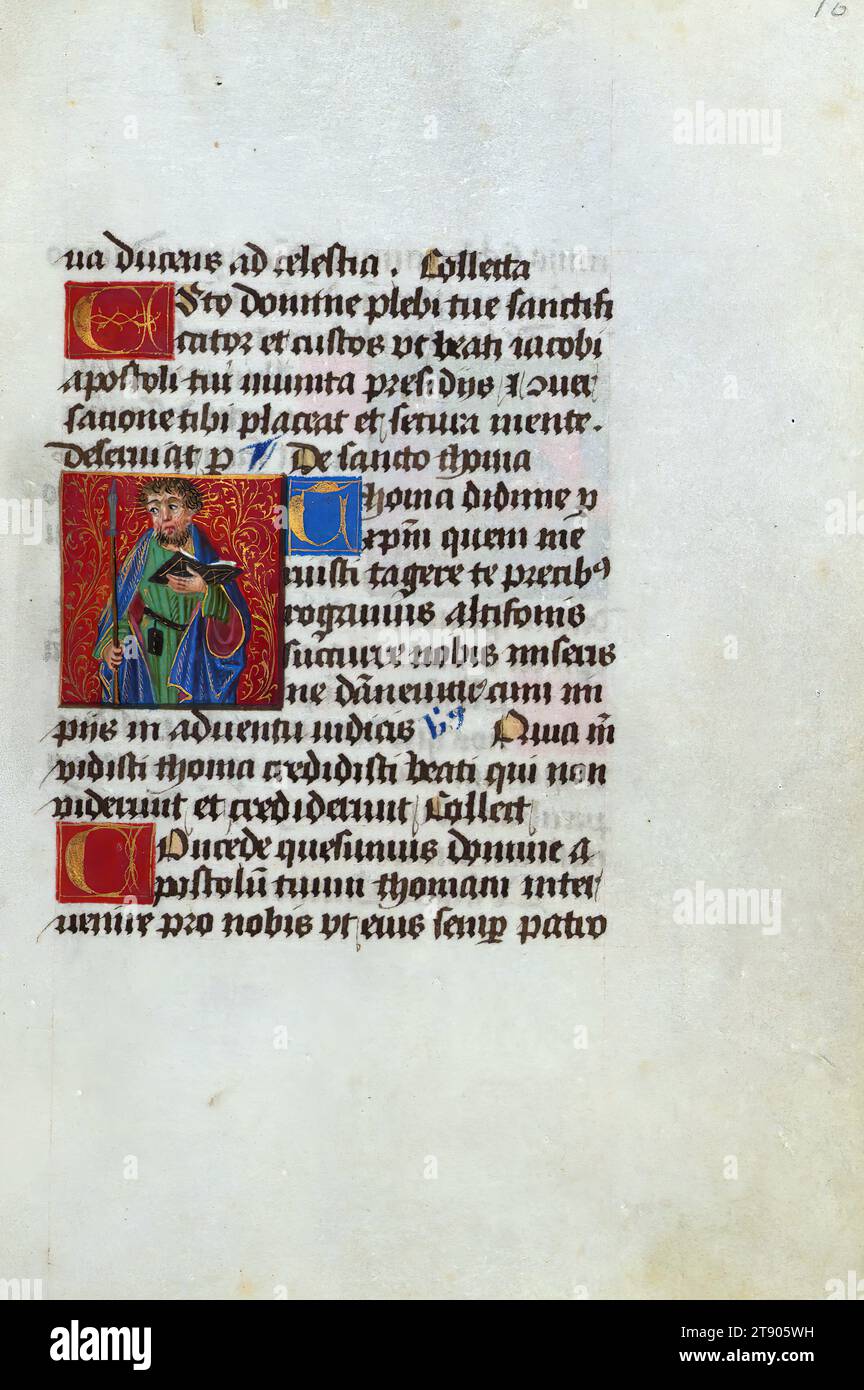 16
ua ducens ad celestia. Collecta
Esto domine plebi tue sanctifi
cator et custos vt beati iacobi
apostoli tui munita presidijs et 9uer
satione tibi placeat et secura mente.
deseruiat p De sancto thoma
Thoma didime p
xpm quem me
ruisti tagere te precib9
rogamus altisonis
succurre nobis miseris
ne dānemur cum im
pijs in aduentu iudicis Quia m
vidisti thoma credidisti beati qui non
viderunt et crediderunt Collect
Concede quesumus domine a
postolū tuum thomam inter
uenire pro nobis vt eius semp patro
alamy
Image ID: 2T905WH
www.alamy.com